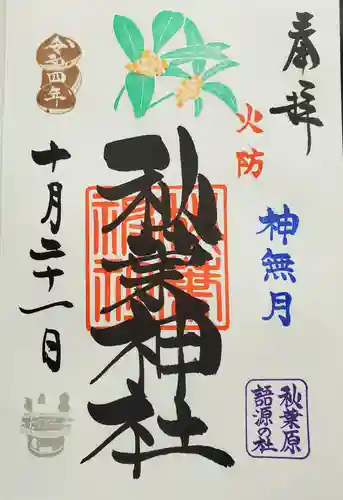 奉拝
火防
神無月
秋葉原
語源の社
秋葉神社
令和四年
十月二十一日